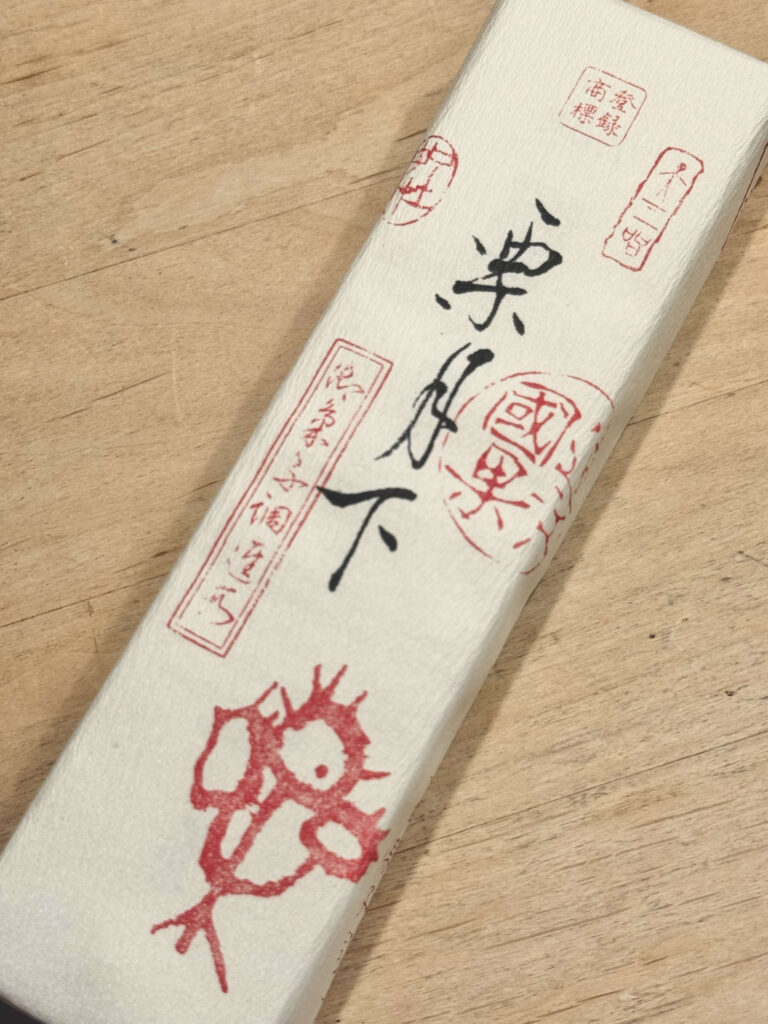 登録
商標
栗月下
國果
御菓子調進所